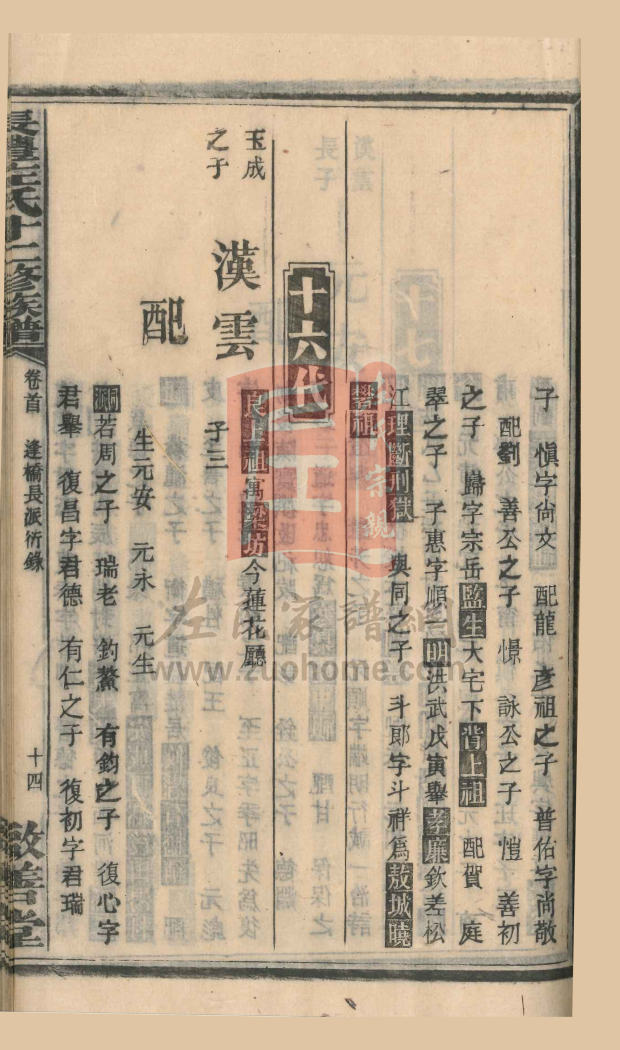 子　愼字尙文　配龍　彥祖之子　普佑字尙敬
配劉　善丞之子　憬　詠丞之子　愷　善初
之子　歸字宗岳監生大宅下背上祖　配賀　庭
翠之子　子惠字順一明洪武戊寅舉孝廉欽差松
江理斷刑獄　與同之子　斗郎字斗祥爲敖城曉
祖
十六代
玉成
之子
漢雲
子三
良上祖寓樂坊今蓮花廳
配
生元安　元永　元生
若周之子　瑞老　釣鰲　有鈞之子　復心字
君舉　復昌字君德　有仁之子　復初字君瑞
左氏十二修族譜
卷首　逢橋長派衍錄
十四
敦善堂
左氏家譜網
www.zuohome.com